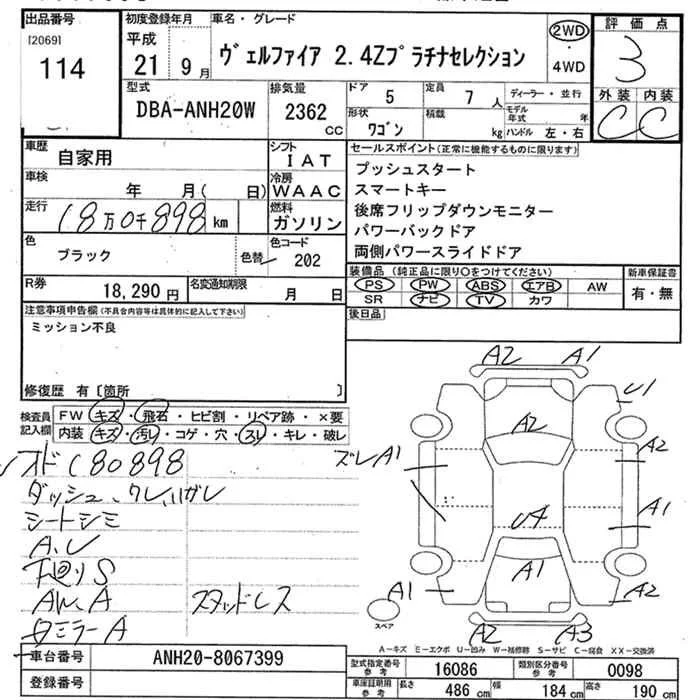 出品番号
[2069]
114
初度登録年月
平成
21年9月
車名・グレード
ヴェルファイア 2.4Zプラチナセレクション
2WD
・
4WD
評価点
3
外装 内装
C C
型式
DBA-ANH20W
排気量
2362
CC
ドア
5
定員
7人
ディーラー・並行
形状
ワゴン
積載
kg
モデル年式 年
ハンドル 左・右
車歴
自家用
シフト
IAT
車検
年 月( 日)
冷房
WAAC
走行
18万0千898km
燃料
ガソリン
色
ブラック
色替
色コード
202
R券
18,290円
名変通知期限
月 日
セールスポイント(正常に機能するものに限ります)
プッシュスタート
スマートキー
後席フリップダウンモニター
パワーバックドア
両側パワースライドドア
装備品 (純正品に限り○をつけてください)
新車保証書
PS PW ABS エアB AW
SR ナビ TV カワ
有・無
後日品
注意事項申告欄(不具合内容等は具体的に記入して下さい)
ミッション不良
修復歴 有 [箇所 ]
検査員記入欄
FW キズ・飛石・ヒビ割・リペア跡・×要
内装 キズ・汚レ・コゲ・穴・スレ・キレ・破レ
メオド180898
ダッシュ、クレ、ハガレ
シートシミ
A.U
下廻りS
AW.A
スタッドレス
ミラーA
A2 A1
U1
A2
A2
ズレA1
A1
U4
A1
A1
A2
スペア
A2 A3
A-キズ E-エクボ U-凹み W-補修跡 S-サビ C-腐食 XX-交換済
車台番号
ANH20-8067399
登録番号
型式指定番号
参考
16086
類別区分番号
参考
0098
車庫証明用
参考
長さ 486cm
幅 184cm
高さ 190cm